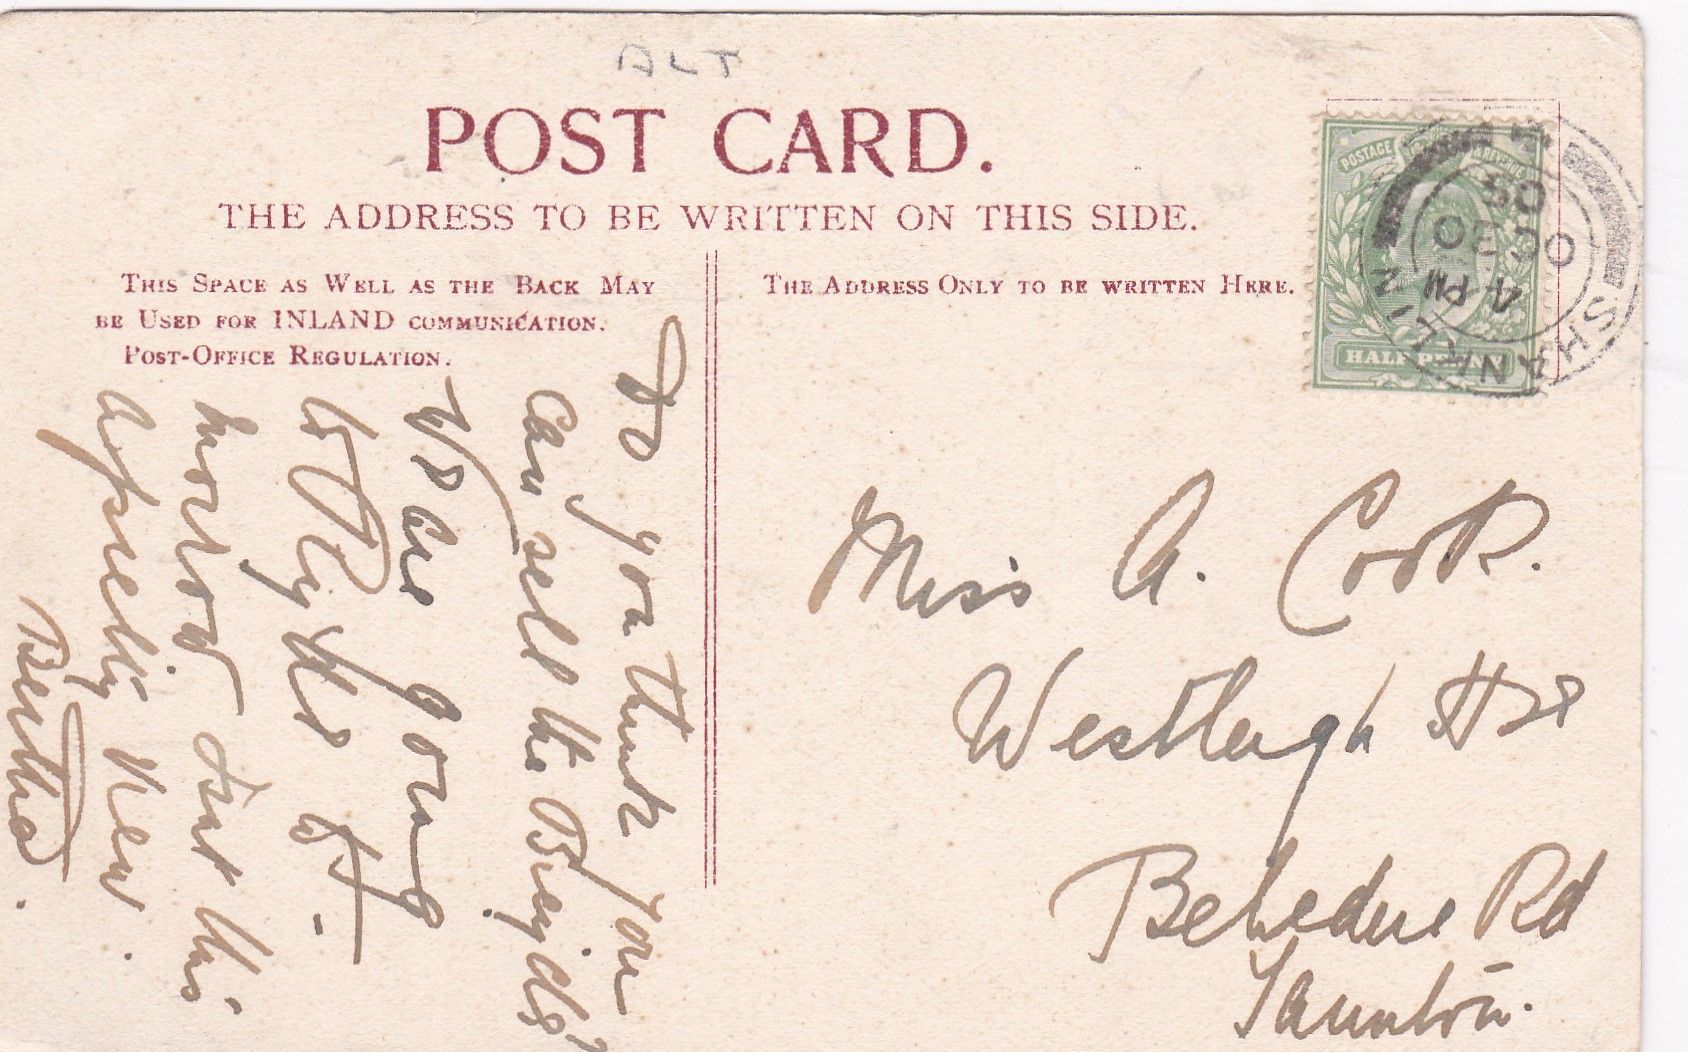 ALT
POST CARD.
THE ADDRESS TO BE WRITTEN ON THIS SIDE.
THIS SPACE AS WELL AS THE BACK MAY
BE USED FOR INLAND COMMUNICATION.
POST-OFFICE REGULATION.
THE ADDRESS ONLY TO BE WRITTEN HERE.
POSTAGE & REVENUE
HALF PENNY
SHANKLIN
4 PM
OC 30
05
Do you think you
can sell the
We are going
to Ryde to-
morrow but this
Bertha.
Miss A. Cook.
Westleigh Hse
Belvedere Rd
Taunton.